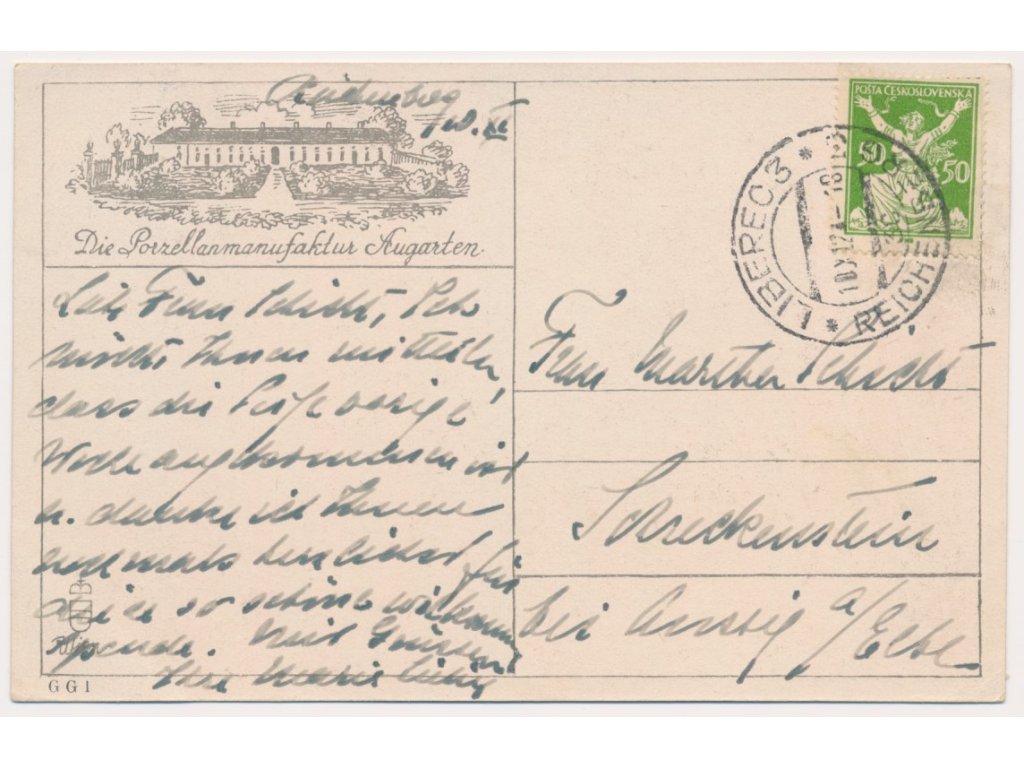 Reichenberg
10. XI
Die Porzellanmanufaktur Augarten.
Liebe Frau Schicht, Ich
möchte Ihnen mitteilen,
dass die Seife vorige
Woche angekommen ist
u. danke ich Ihnen
nochmals herzlichst für
diese so schöne willkommene
Spende. Mit Grüssen
Ihre Marie
GG1
POŠTA ČESKOSLOVENSKÁ
50 50
LIBEREC 3 * REICHENBERG
Frau Martha Schicht
Schreckenstein
bei Aussig a/Elbe